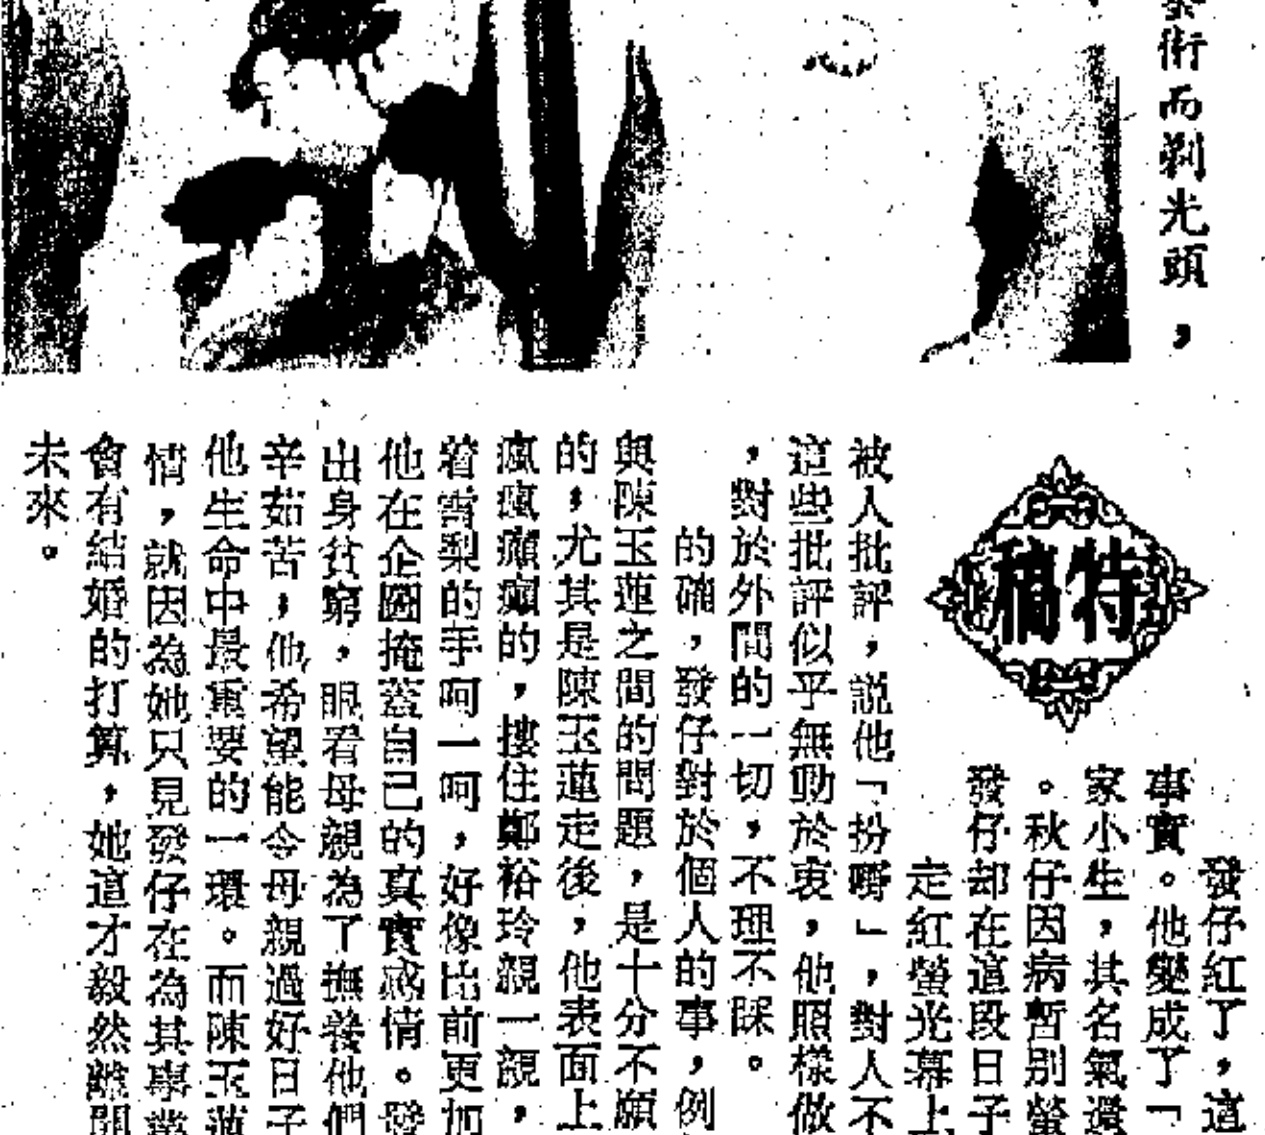 術而剃光頭，
特稿
發仔紅了，這
事實。他變成了「
家小生，其名氣還
。秋仔因病暫別螢
發仔却在這段日子
走紅螢光幕上
被人批評，説他「扮嘢」，對人不
這些批評似乎無動於衷，他照樣做
，對於外間的一切，不理不睬。
的確，發仔對於個人的事，例
與陳玉蓮之間的問題，是十分不願
的，尤其是陳玉蓮走後，他表面上
瘋瘋癲癲的，摟住鄭裕玲親一親，
着雪梨的手呵一呵，好像比前更加
他在企圖掩蓋自己的真實感情。發
出身貧窮，眼看母親為了撫養他們
辛茹苦，他希望能令母親過好日子
他生命中最重要的一環。而陳玉蓮
情，就因為她只見發仔在為其事業
會有結婚的打算，她這才毅然離開
未來。